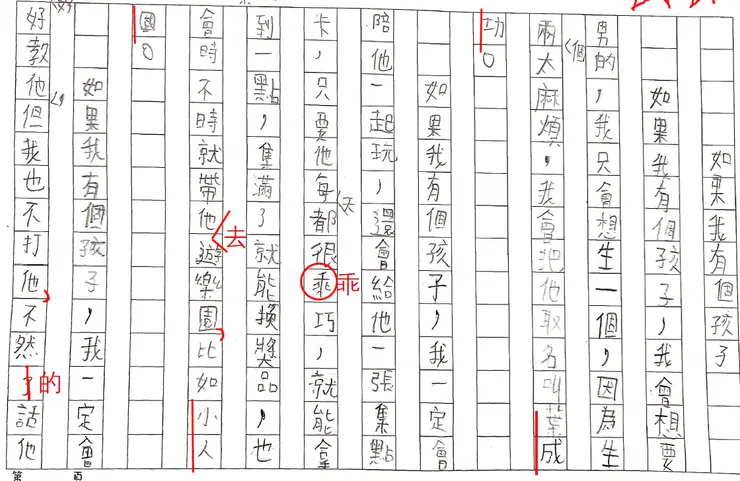 如果我有個孩子
如果我有個孩子，我會想要
男的，我只會想生一個，因為生
兩個太麻煩，我會把他取名叫葉成
功。
如果我有個孩子，我一定會
陪他一起玩，還會給他一張集點
卡，只要他每天都很乖巧，就能拿
乖
到一點，集滿了就能換獎品，也
去
會時不時就帶他遊樂園，比如小人
國。
如果我有個孩子，我一定會
的
好好教他，但我也不打他，不然話他
第 頁